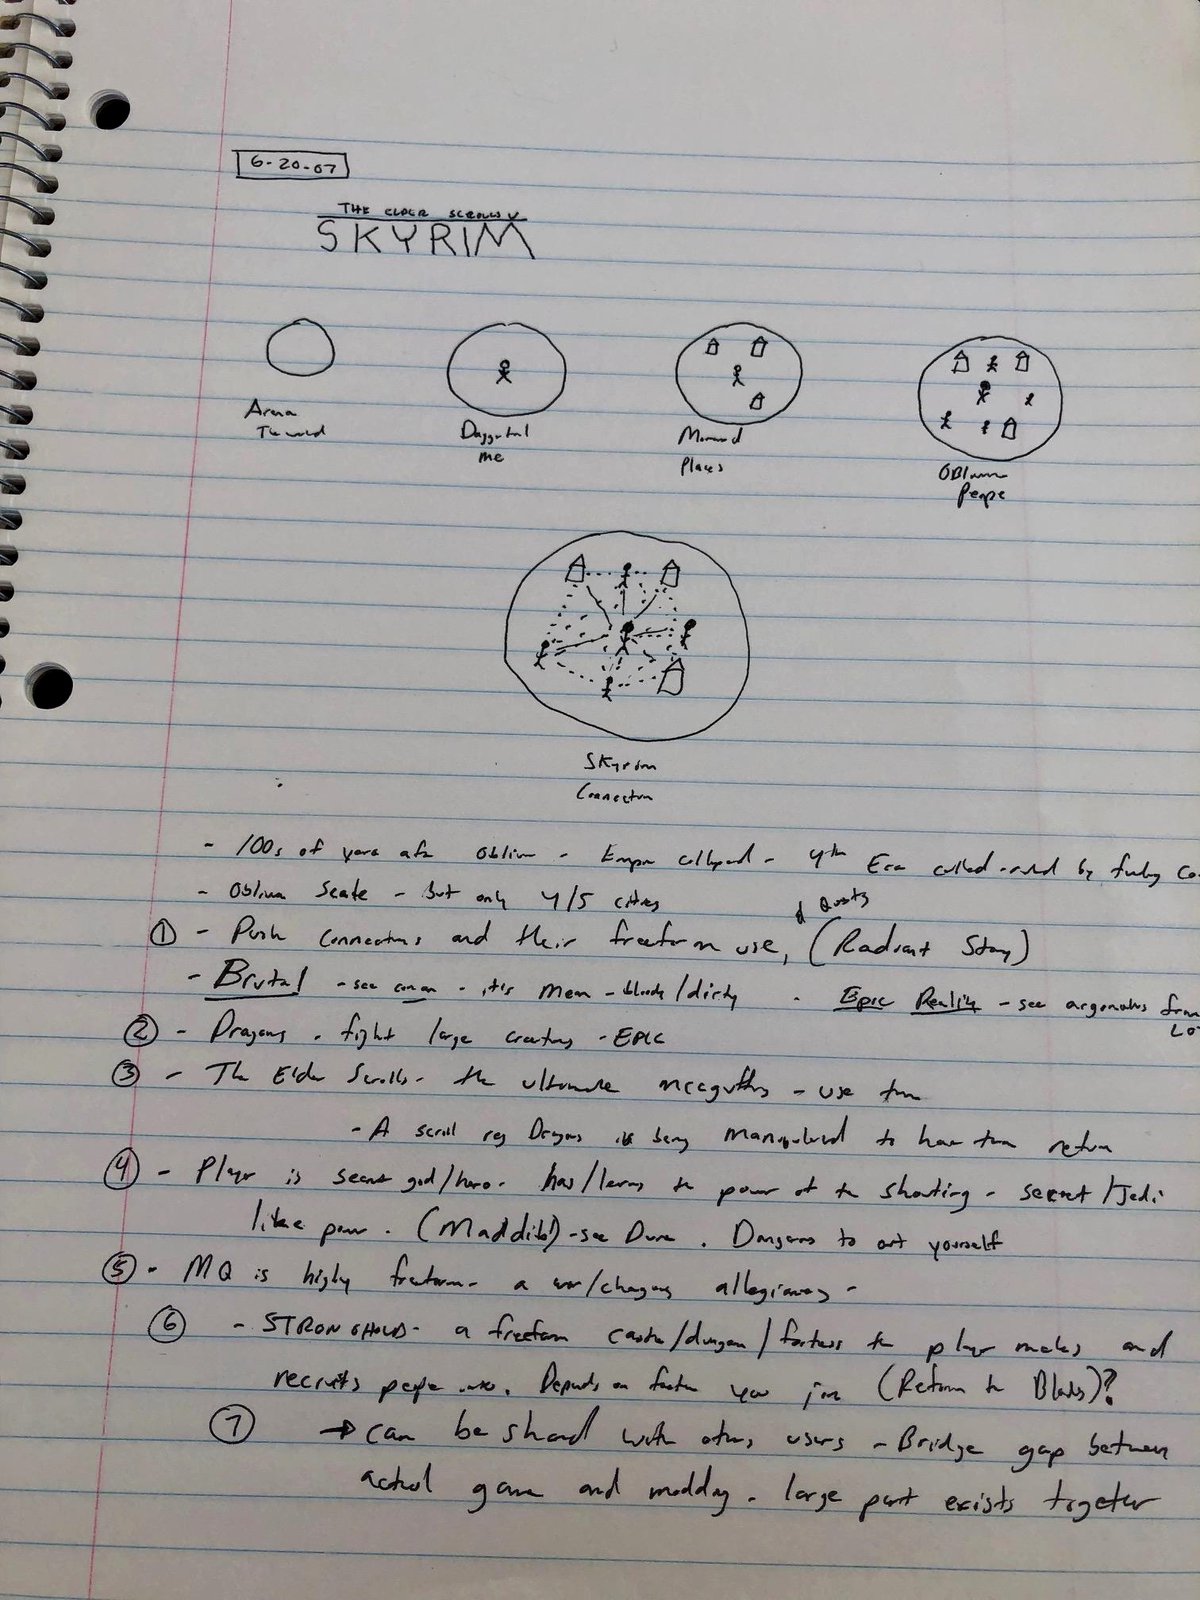 6-20-07
THE ELDER SCROLLS V
SKYRIM
Arena
The world
Daggerfall
me
Morrowind
Places
Oblivion
People
Skyrim
Connection
- 100s of years after Oblivion - Empire collapsed - 4th Era called - ruled by
- Oblivion Scale - But only 4/5 cities
& Quests
① - Push connections and their freeform use, (Radiant Story)
- Brutal - see conan - it's Mean - bloody/dirty - Epic Reality - see argonaths from
② - Dragons - fight large creatures - EPIC
③ - The Elder Scrolls - the ultimate mcguffins - use them
- A scroll reg Dragons is being manipulated to have them return
④ - Player is secret god/hero - has/learns the power of the shouting - secret/Jedi
like power. (Maddib!) - see Dune. Dangerous to out yourself
⑤ - MQ is highly freeform - a war/changing allegiances -
⑥ - STRONGHOLD - a freeform castle/dungeon/fortress the player makes and
recruits people into. Depends on faction you join (Return to Blades)?
⑦ → can be shared with other users - Bridge gap between
actual game and modding - large part exists together